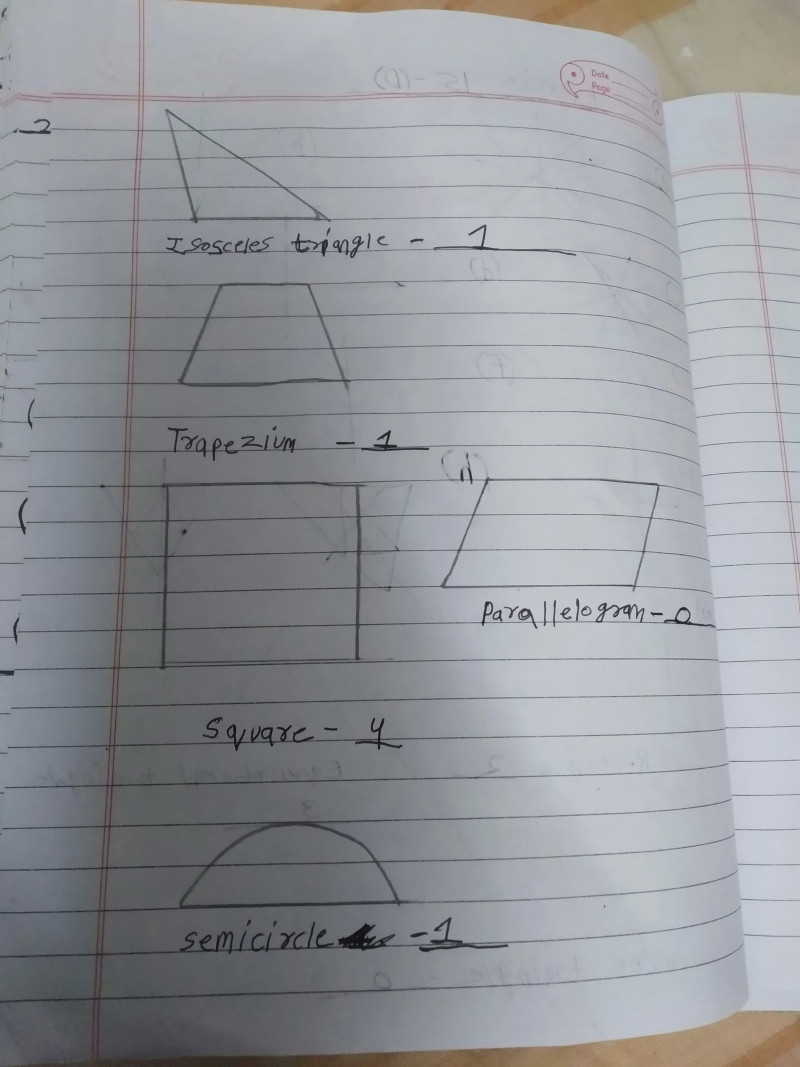 Date
Page
2
Isosceles triangle - 1
Trapezium - 1
Parallelogran - 0
Square - 4
semicircle - 1